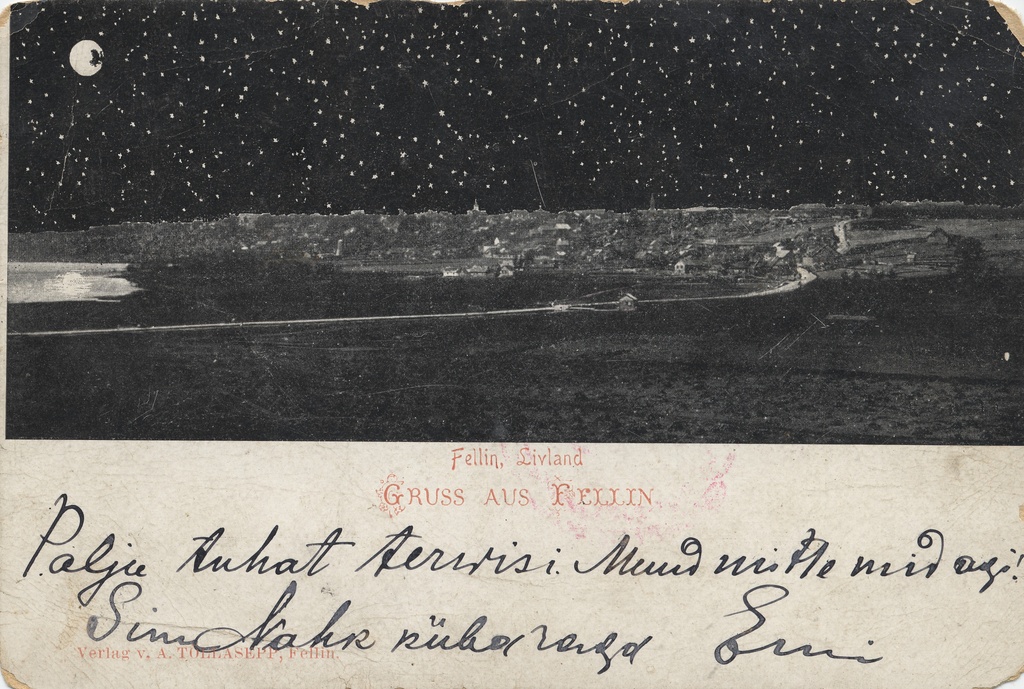 Fellin, Livland
GRUSS AUS FELLIN
Palju tuhat terwisi. Muud mitte midagi!
Sinu Nahk kübaraga Erni
Verlag v. A. TOLLASEPP, Fellin.